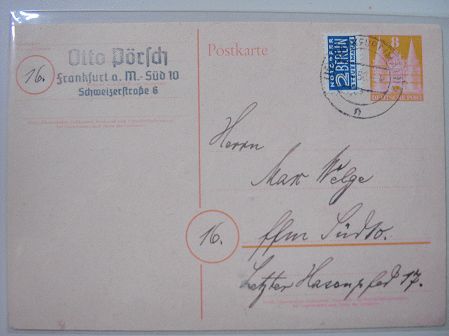 Otto Pörsch
Frankfurt a. M.-Süd 10
Schweizerstraße 6
16.
Postkarte
NOTOPFER
2 BERLIN
STEUERMARKE
8
DEUTSCHE POST
Herrn
Max Welge
16.
ffm Süd 10.
Letzter Hasenpfad 17.